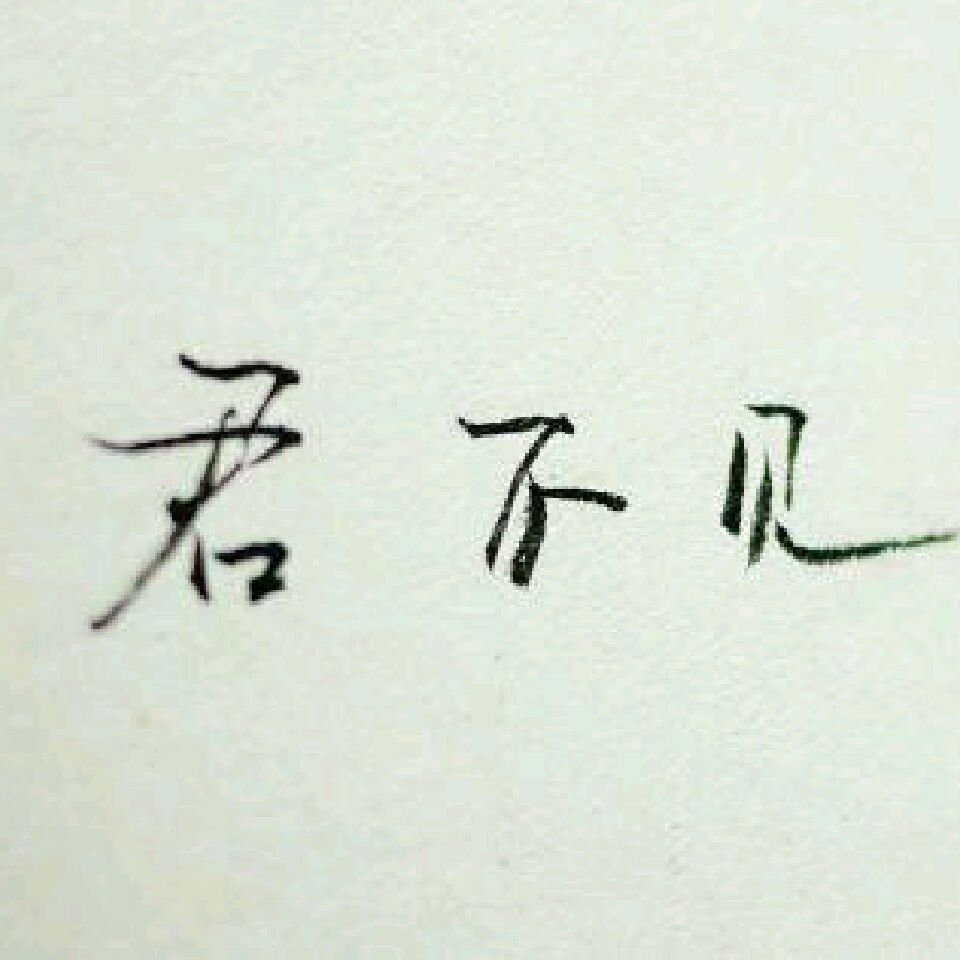 君不见